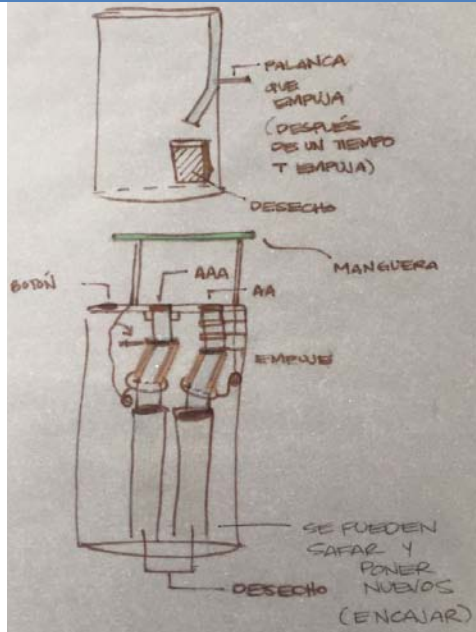 PALANCA
QUE
EMPUJA
(DESPUÉS
DE UN TIEMPO
T EMPUJA)
DESECHO
MANGUERA
BOTÓN
AAA
AA
EMPUJE
SE PUEDEN
SAFAR Y
PONER
NUEVOS
(ENCAJAR)
DESECHO